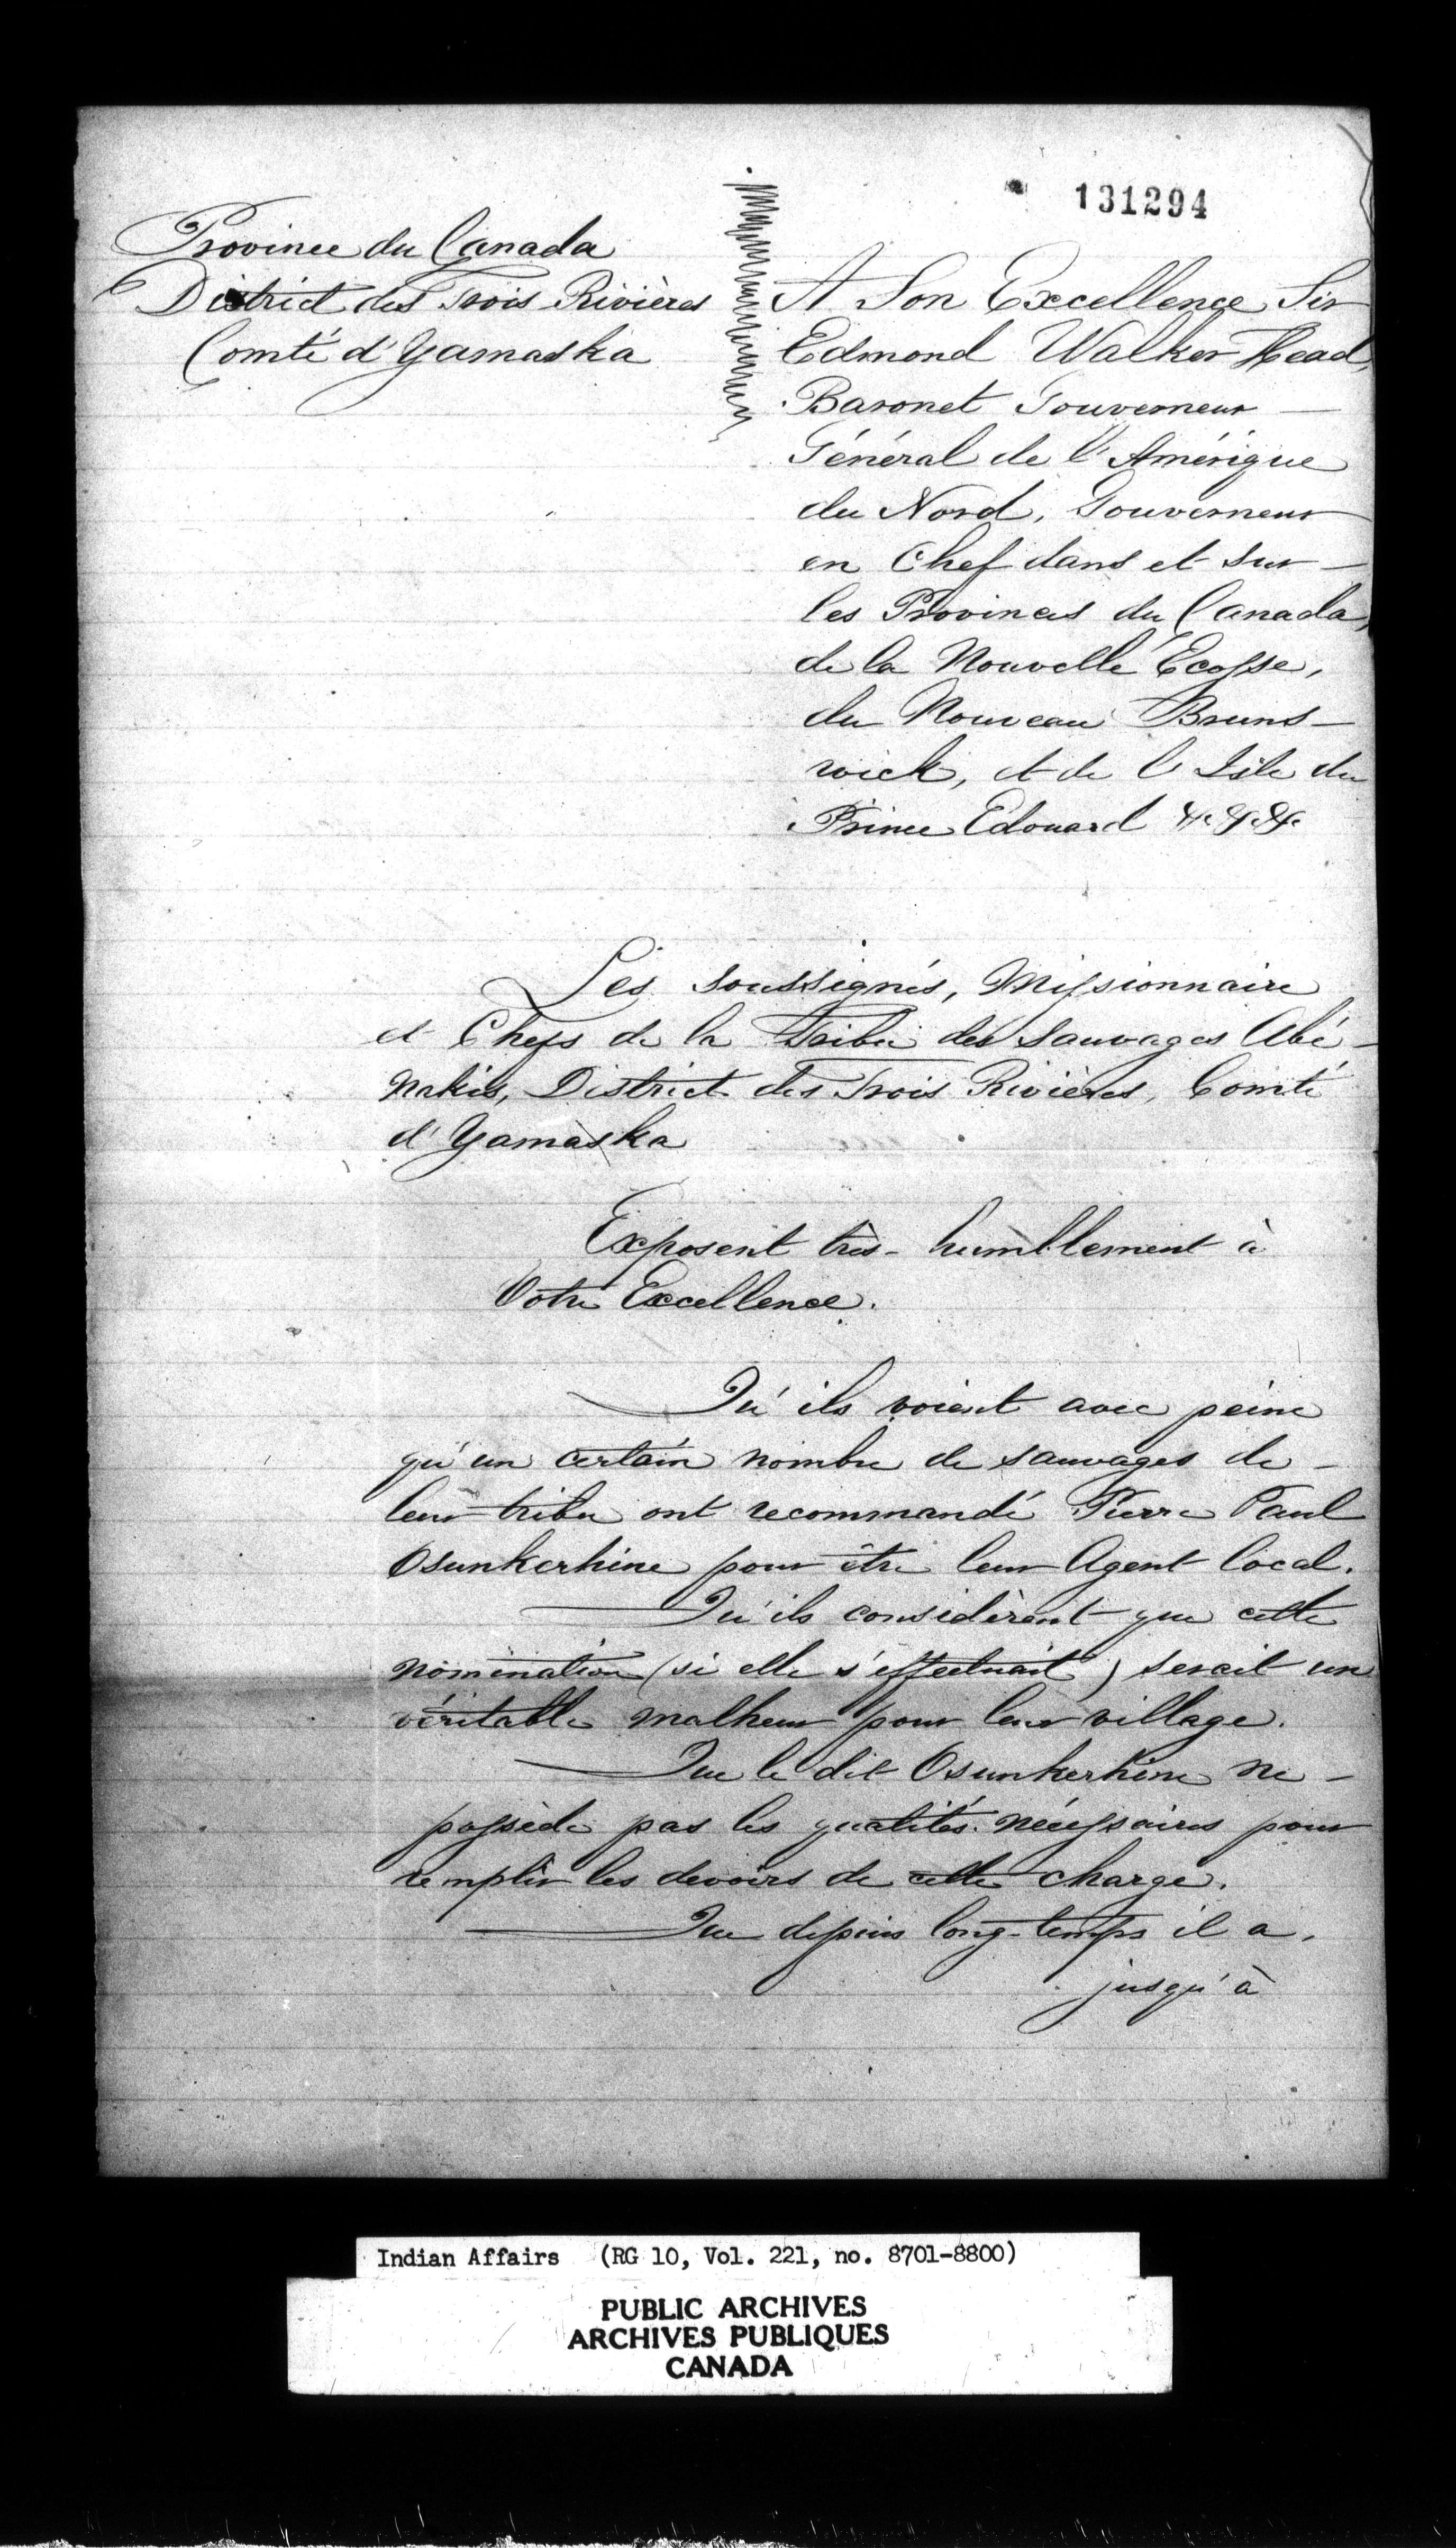 131294
Province du Canada
District des Trois Rivières
Comté d'Yamaska
A Son Excellence Sir
Edmond Walker Head,
Baronet Gouverneur
Général de l'Amérique
du Nord, Gouverneur
en Chef dans et sur
les Provinces du Canada,
de la Nouvelle Ecosse,
du Nouveau Bruns-
wick, et de l'Isle du
Prince Edouard &c. &. &c.
Les soussignés, Missionnaire
et Chefs de la Tribu des Sauvages Abé-
nakis, District des Trois Rivières, Comté
d'Yamaska
Exposent très-humblement à
Votre Excellence.
Qu'ils voient avec peine
qu'un certain nombre de sauvages de
leur tribu ont recommandé Pierre Paul
Osunkerhine pour être leur Agent local.
Qu'ils considèrent que cette
nomination (si elle s'effectuait) serait un
véritable malheur pour leur village.
Que le dit Osunkerhine ne
possède pas les qualités nécessaires pour
remplir les devoirs de cette charge.
Que depuis long-temps il a,
jusqu'à
Indian Affairs (RG 10, Vol. 221, no. 8701-8800)
PUBLIC ARCHIVES
ARCHIVES PUBLIQUES
CANADA